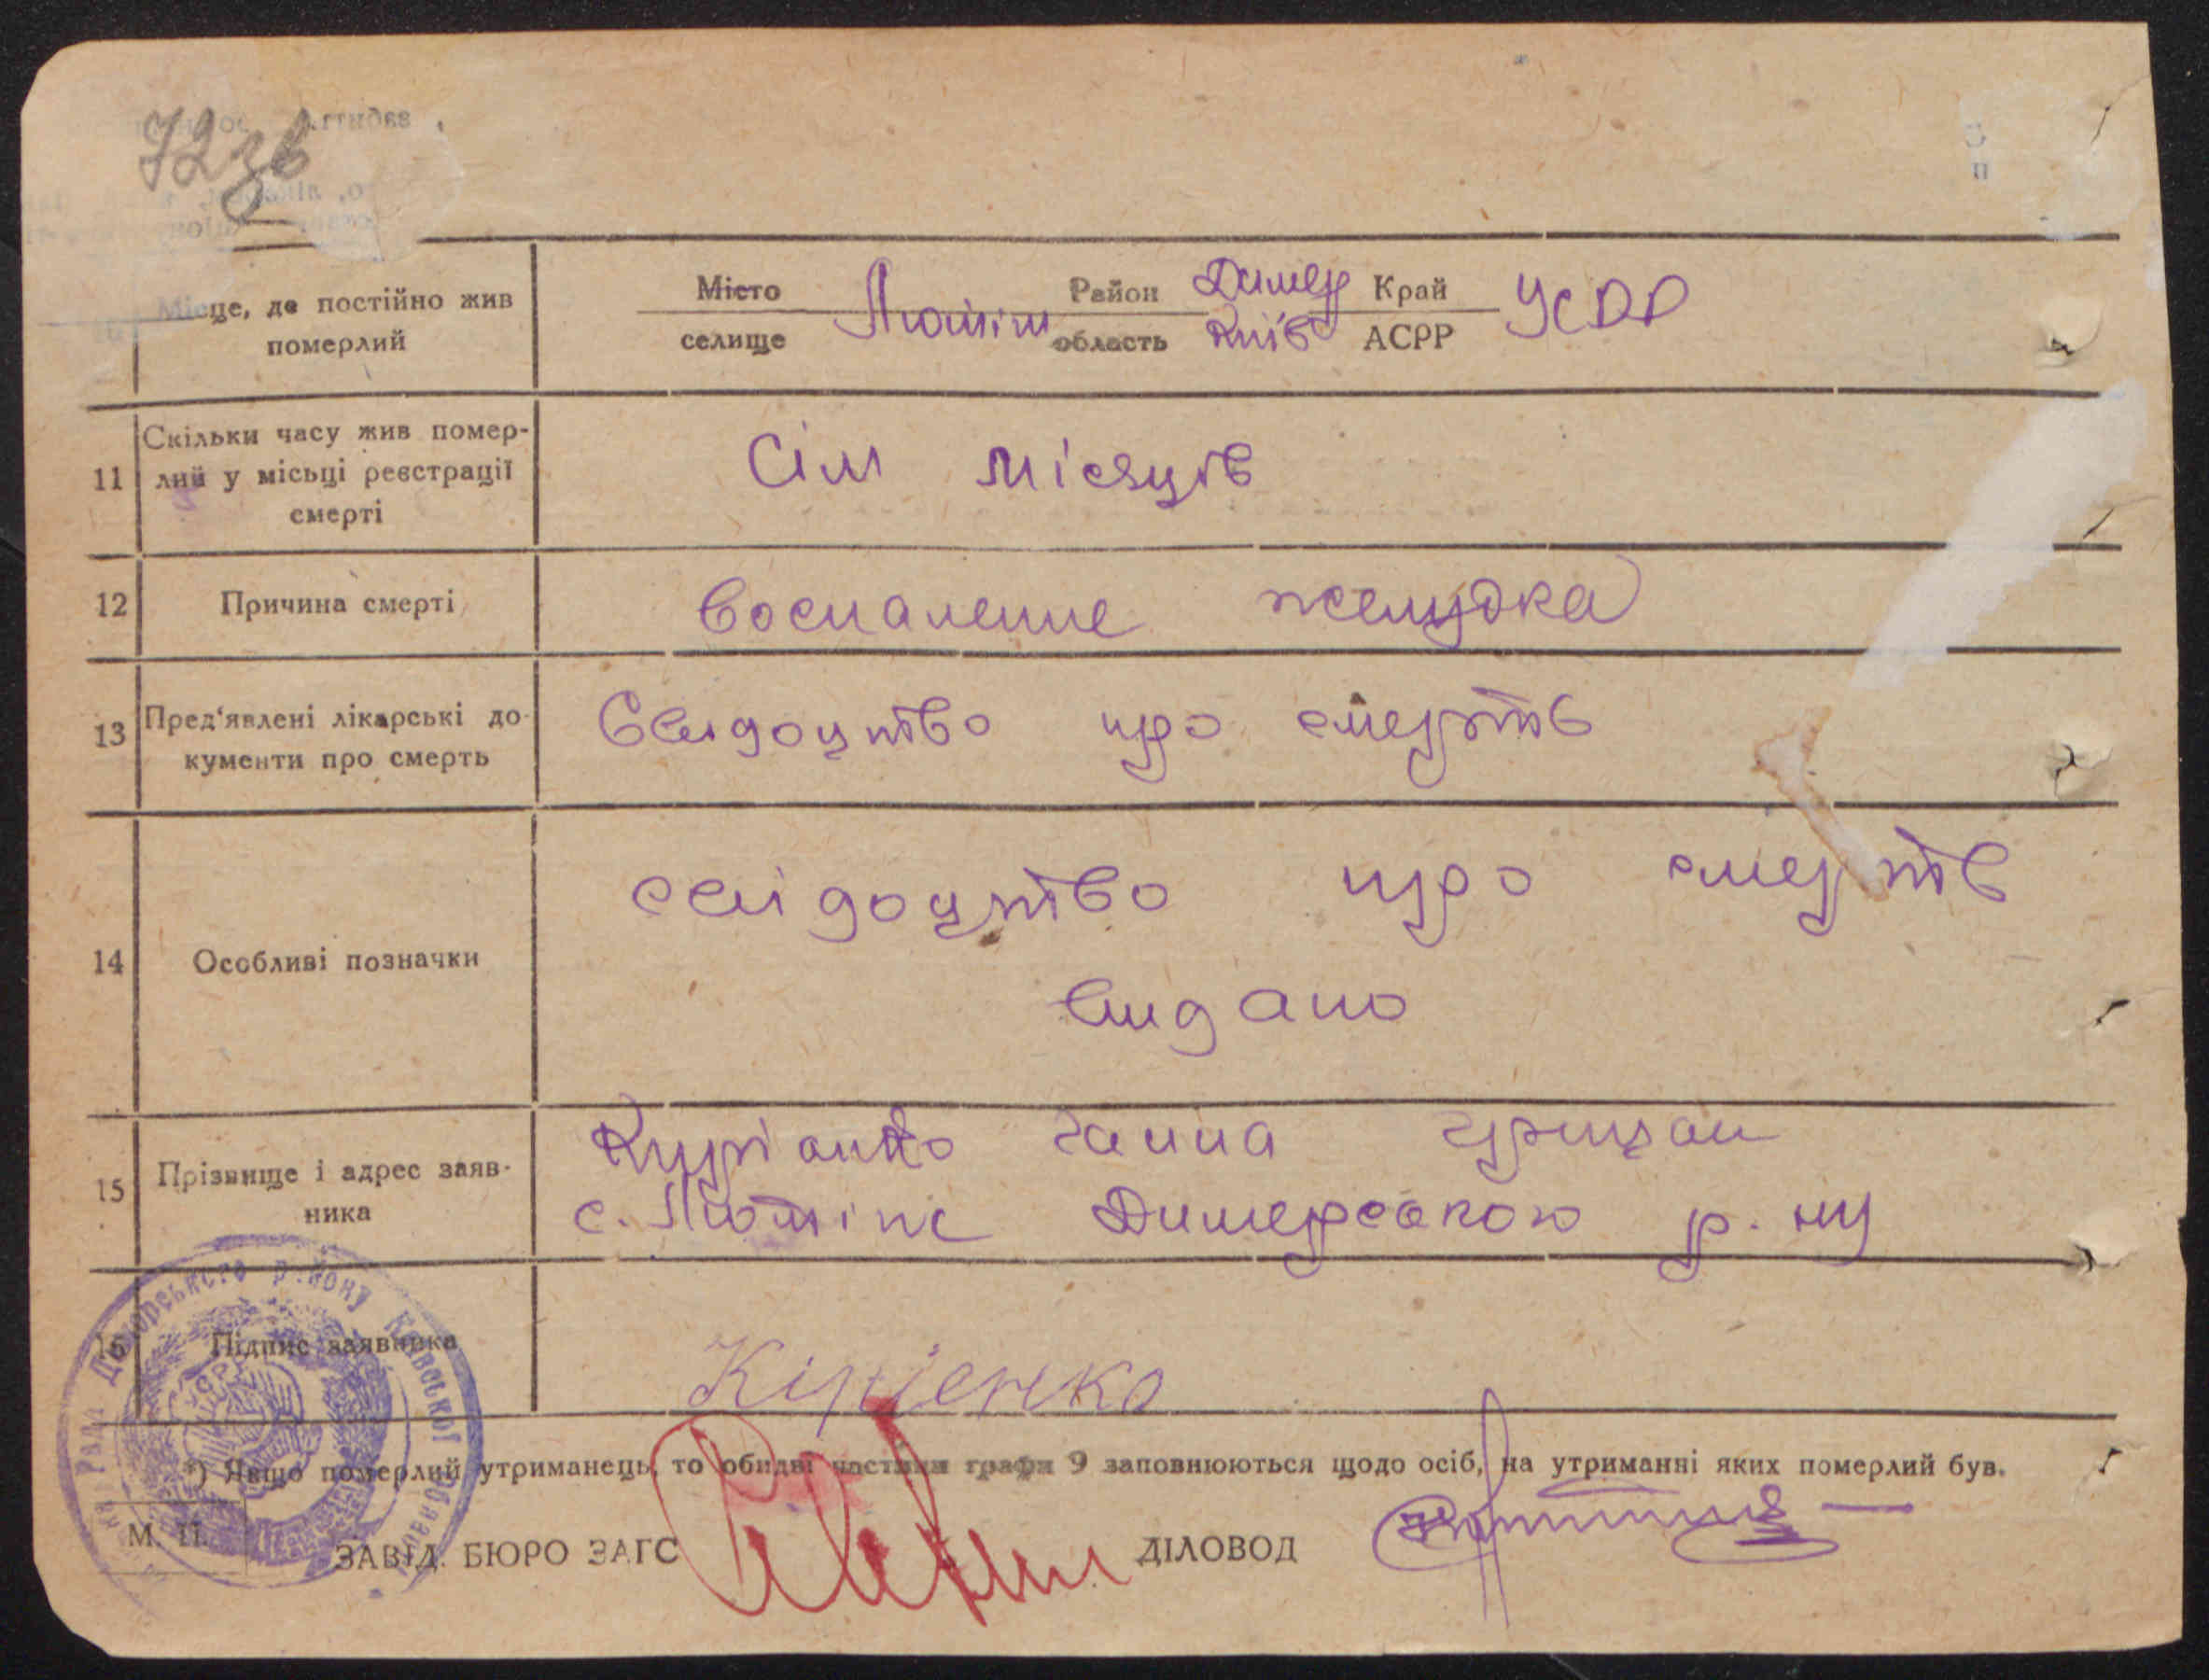 72 зв
Місце, де постійно жив
померлий
Місто Лютіж Район Димер Край УСРР
селище область Київ АСРР
11 Скільки часу жив помер-
лий у місьці реєстрації
смерті
Сім місяців
12 Причина смерті
Воспаление желудка
13 Пред'явлені лікарські до-
кументи про смерть
Свідоцтво про смерть
14 Особливі позначки
свідоцтво про смерть
видано
15 Прізвище і адрес заяв-
ника
ганна грицьк
с. Лютіж Димерсокого р. ну
16 Підпис заявника
Кірієнко
*) Якщо померлий утриманець, то обидві частини графи 9 заповнюються щодо осіб, на утриманні яких померлий був.
М. П.
ЗАВІД. БЮРО ЗАГС ДІЛОВОД
Рада Димерського району Київської
УСРР